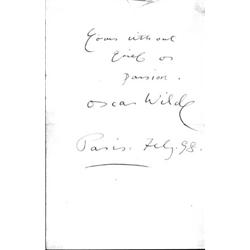 without
or
passion.
Oscar Wilde
Paris. Feby. 98.